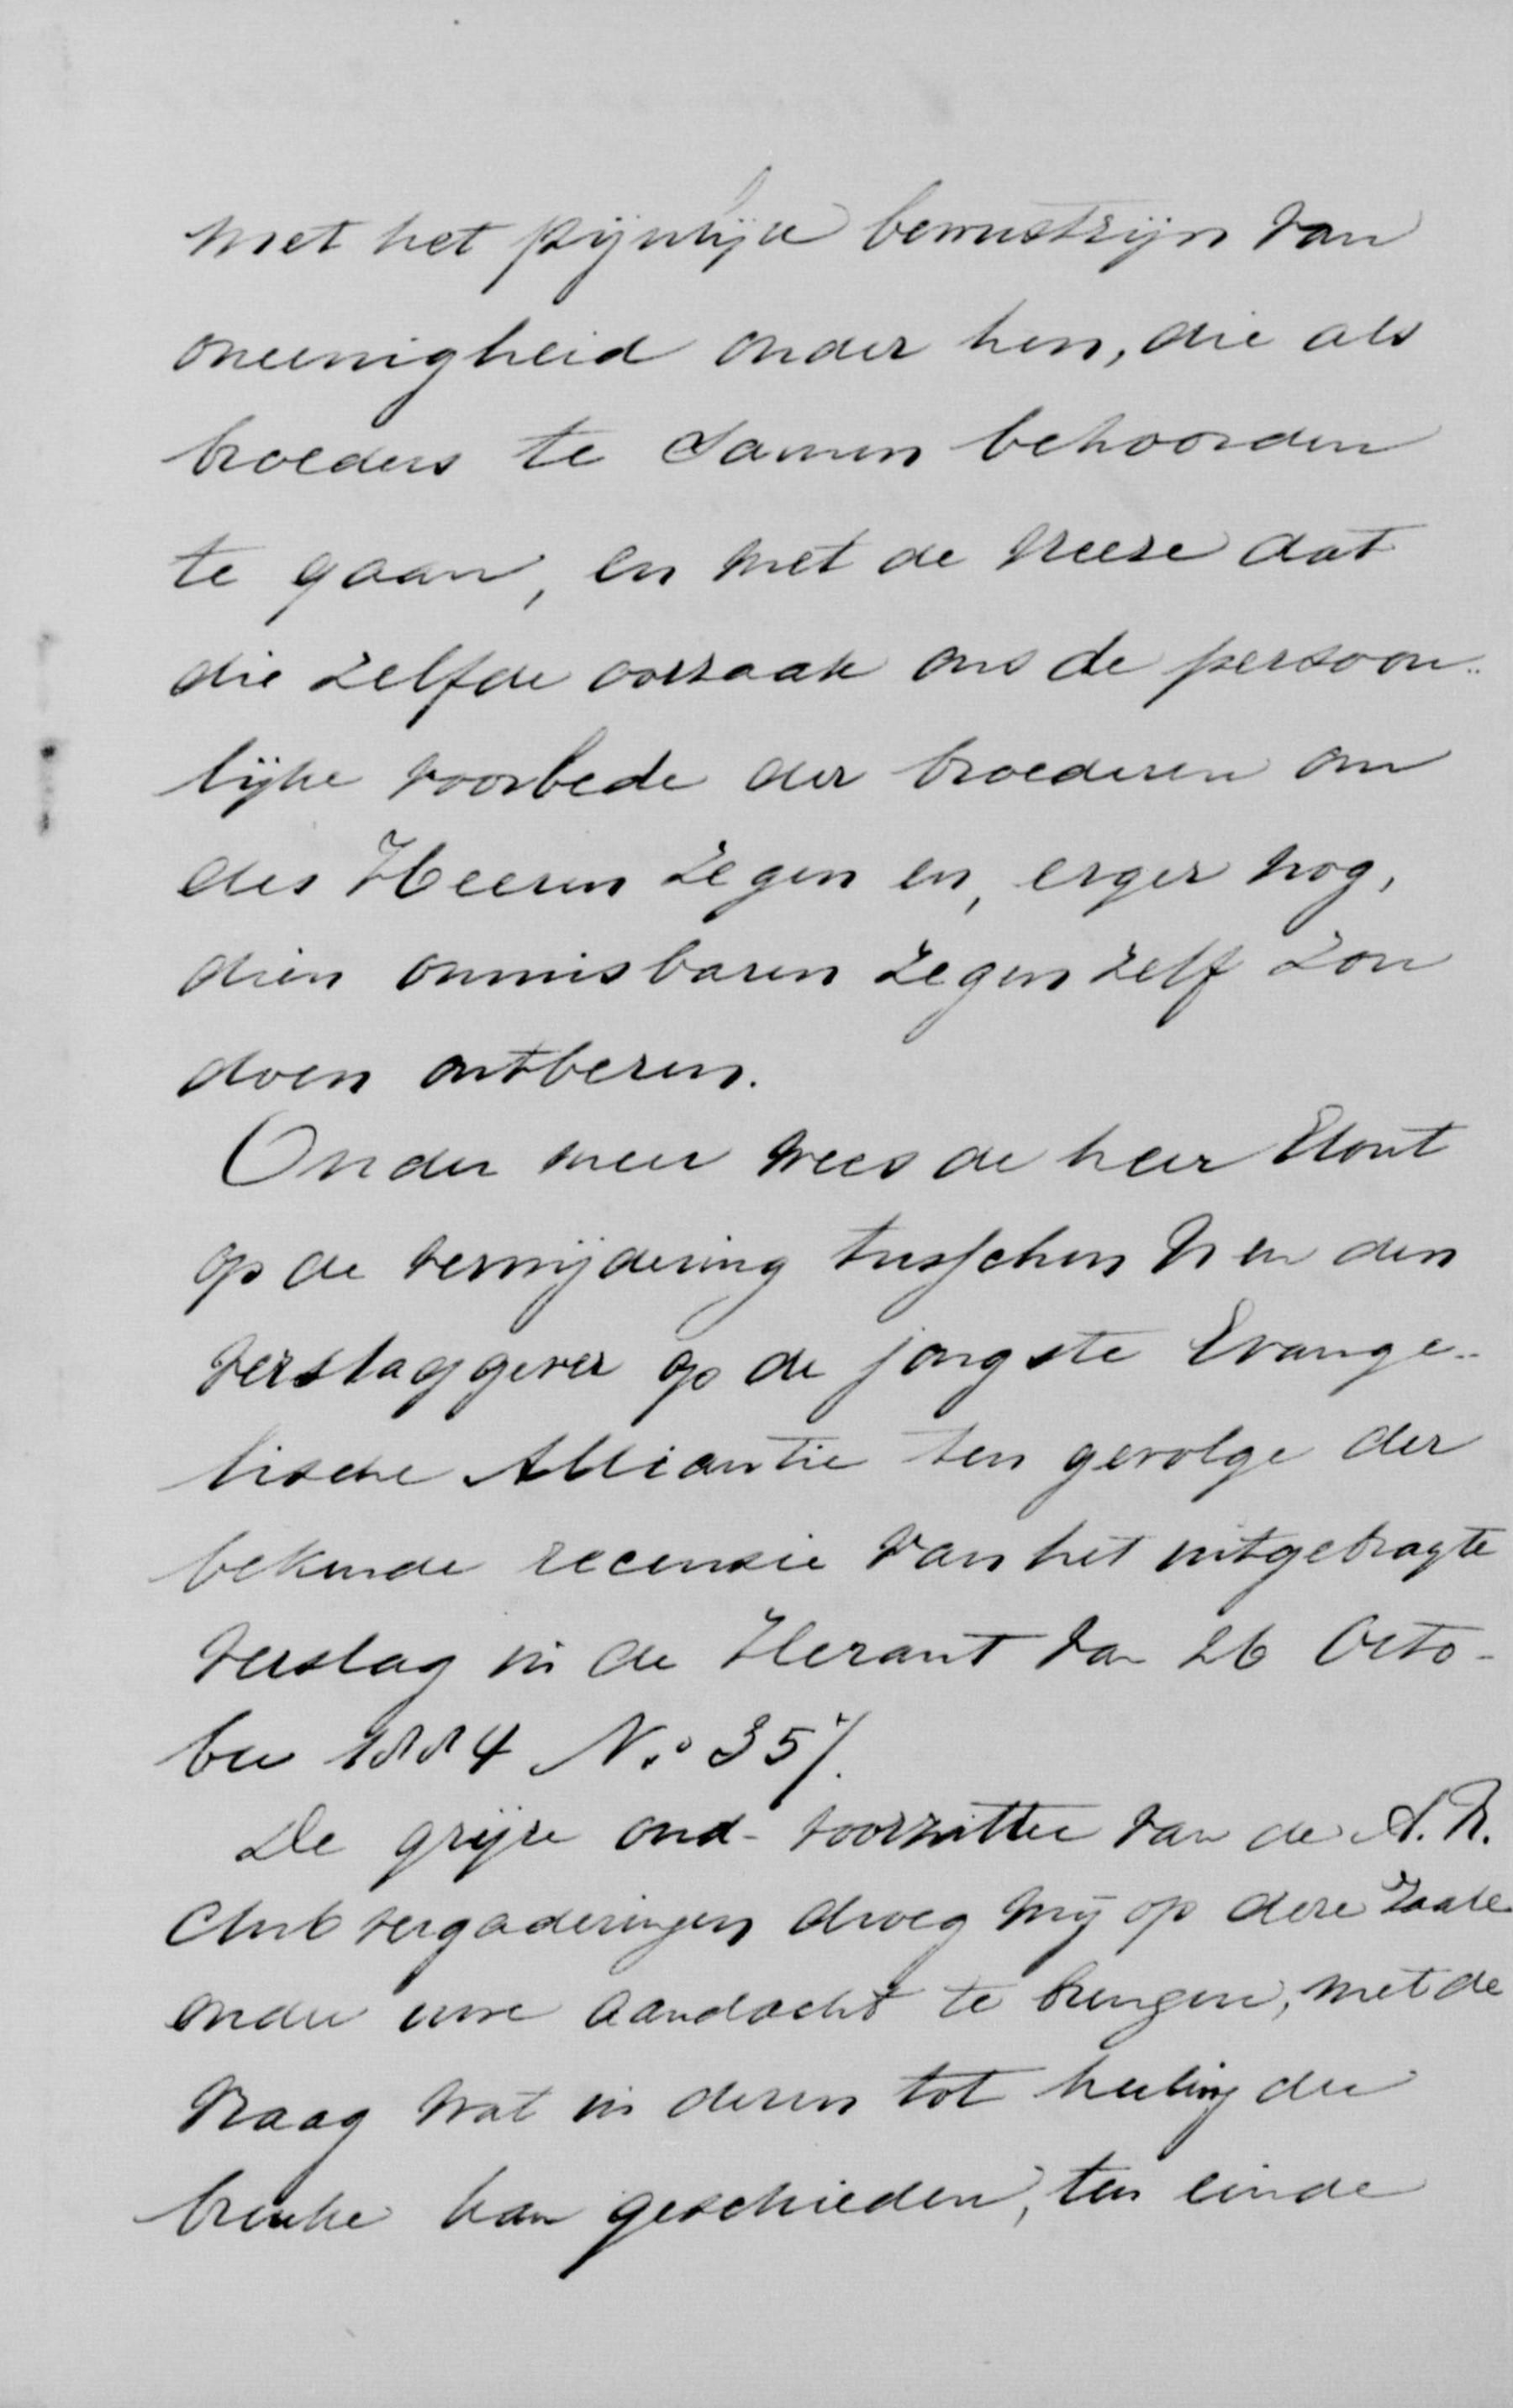 met het pijnlijke bewustzijn van
oneenigheid onder hen, die als
broeders te samen behoorden
te gaan, en met de vreeze dat
die zelfde oorzaak ons de persoon-
lijke voorbede der broederen om
des Heeren zegen en, erger nog,
dien onmisbaren zegen zelf zou
doen ontberen.
Onder meer wees de heer Elout
op de verwijdering tusschen U en den
verslaggever op de jongste Evange-
lische Alliantie ten gevolge der
bekende recensie van het uitgebragte
verslag in de Heraut van 26 Octo-
ber 1884 No. 357.
De grijze oud-voorzitter van de A.R.
Clubvergaderingen droeg mij op deze zaak
onder uwe aandacht te brengen, met de
vraag wat in dezen tot heeling der
breuke kan geschieden, ten einde